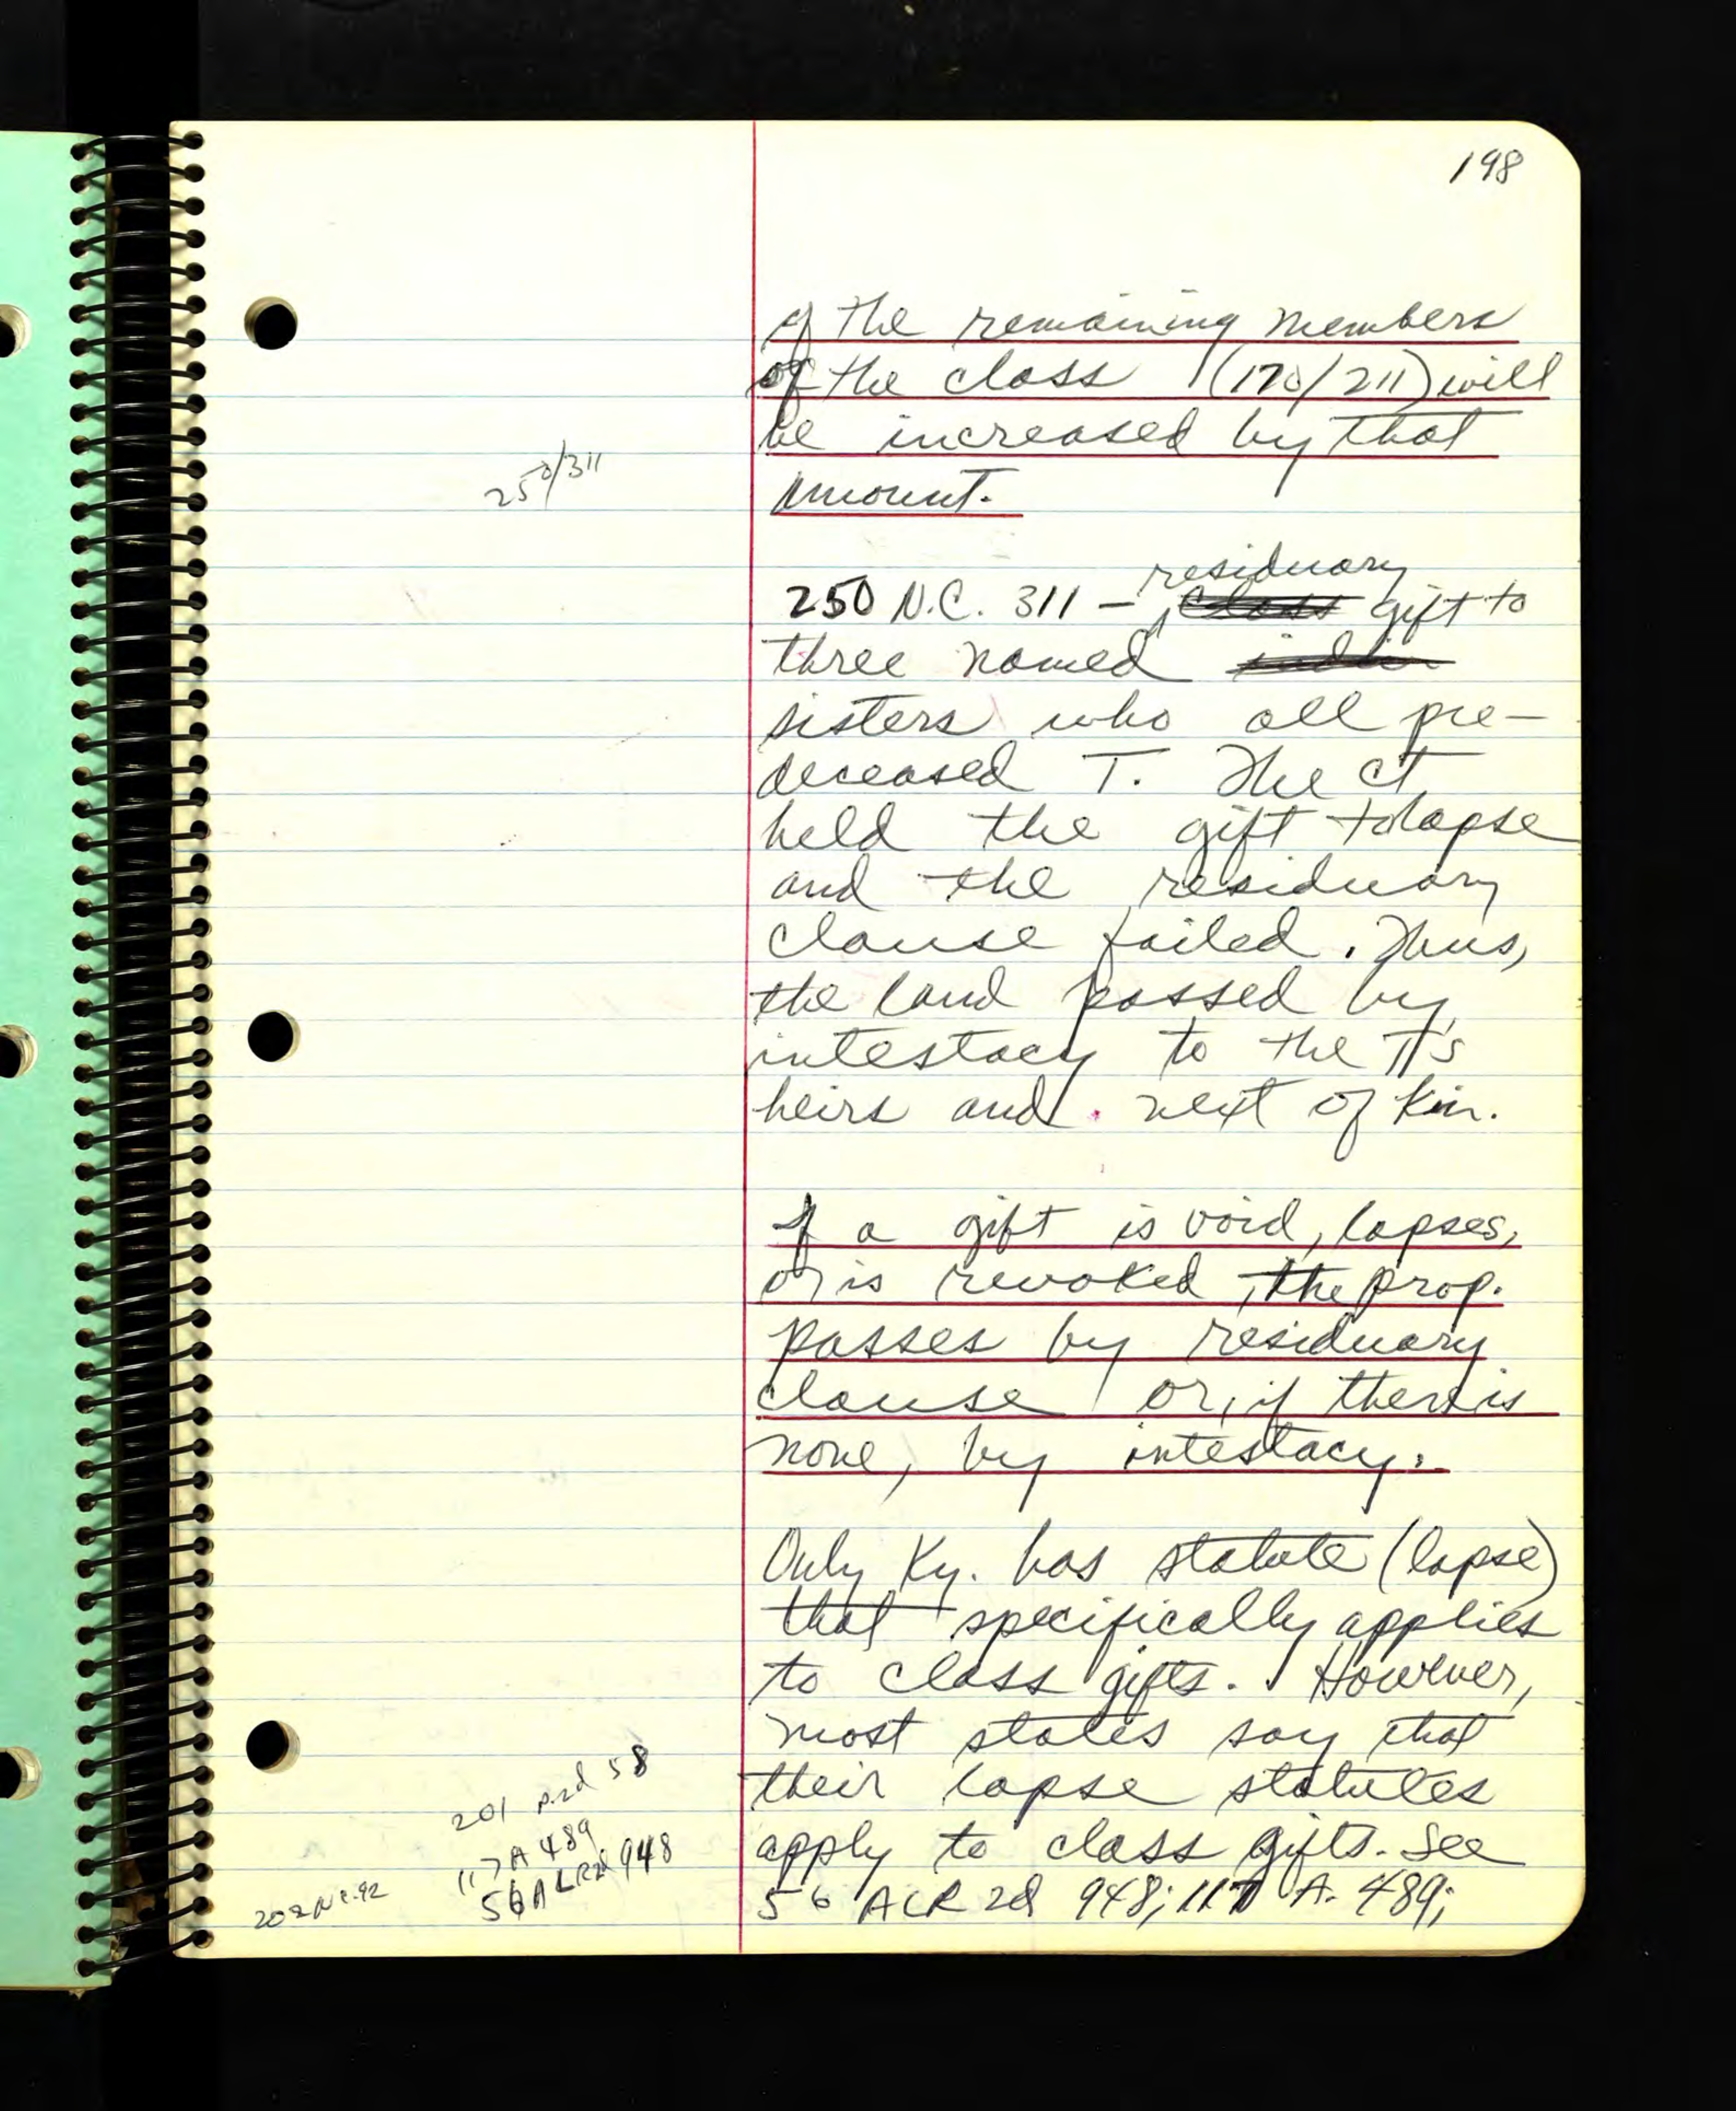 198
of the remaining members
of the class (170/211) will
be increased by that
amount.
250/311
residuary
250 N.C. 311 – class gift to
three named
sisters who all pre-
deceased T. The ct
held the gift to lapse
and the residuary
clause failed. Thus,
the land passed by
intestacy to the T's
heirs and next of kin.
If a gift is void, lapses,
or is revoked, the prop.
passes by residuary
clause or, if there is
none, by intestacy.
Only Ky. has statute (lapse)
that specifically applies
to class gifts. However,
most states say that
their lapse statutes
apply to class gifts. See
56 ALR 2d 948; 117 A. 489;
201 P.2d 58
117 A 489
56 ALR2d 948
202 N.C. 92